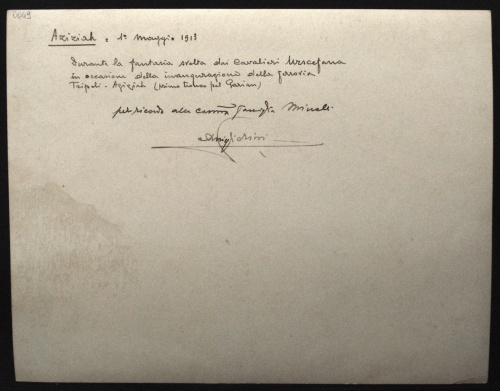 Aziziah, 1º Maggio 1913
Durante la fantasia svolta dai Cavalieri Urscefana
in occasione della inaugurazione della ferrovia
Tripoli - Aziziah (primo tronco pel Garian)
pel ricordo alla famiglia